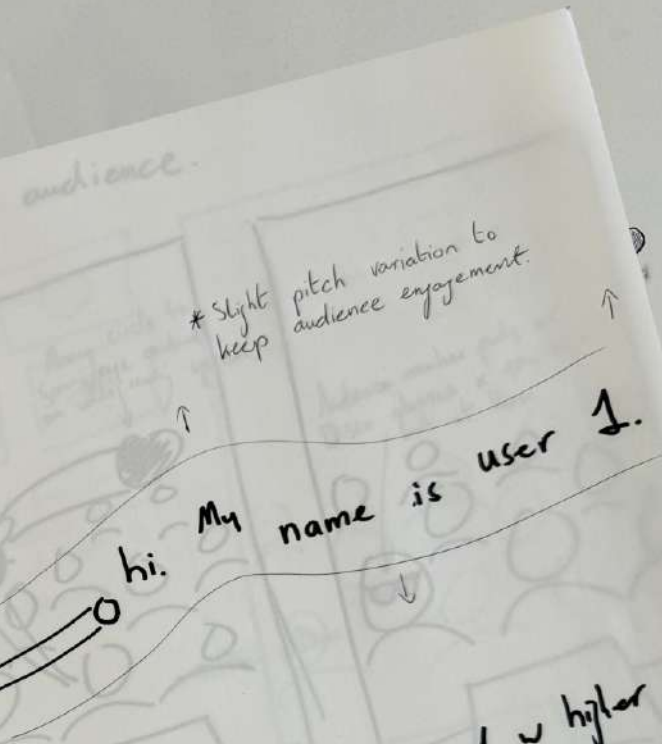 audience.
* Slight pitch variation to
keep audience engagement.
hi. My name is user 1.
higher